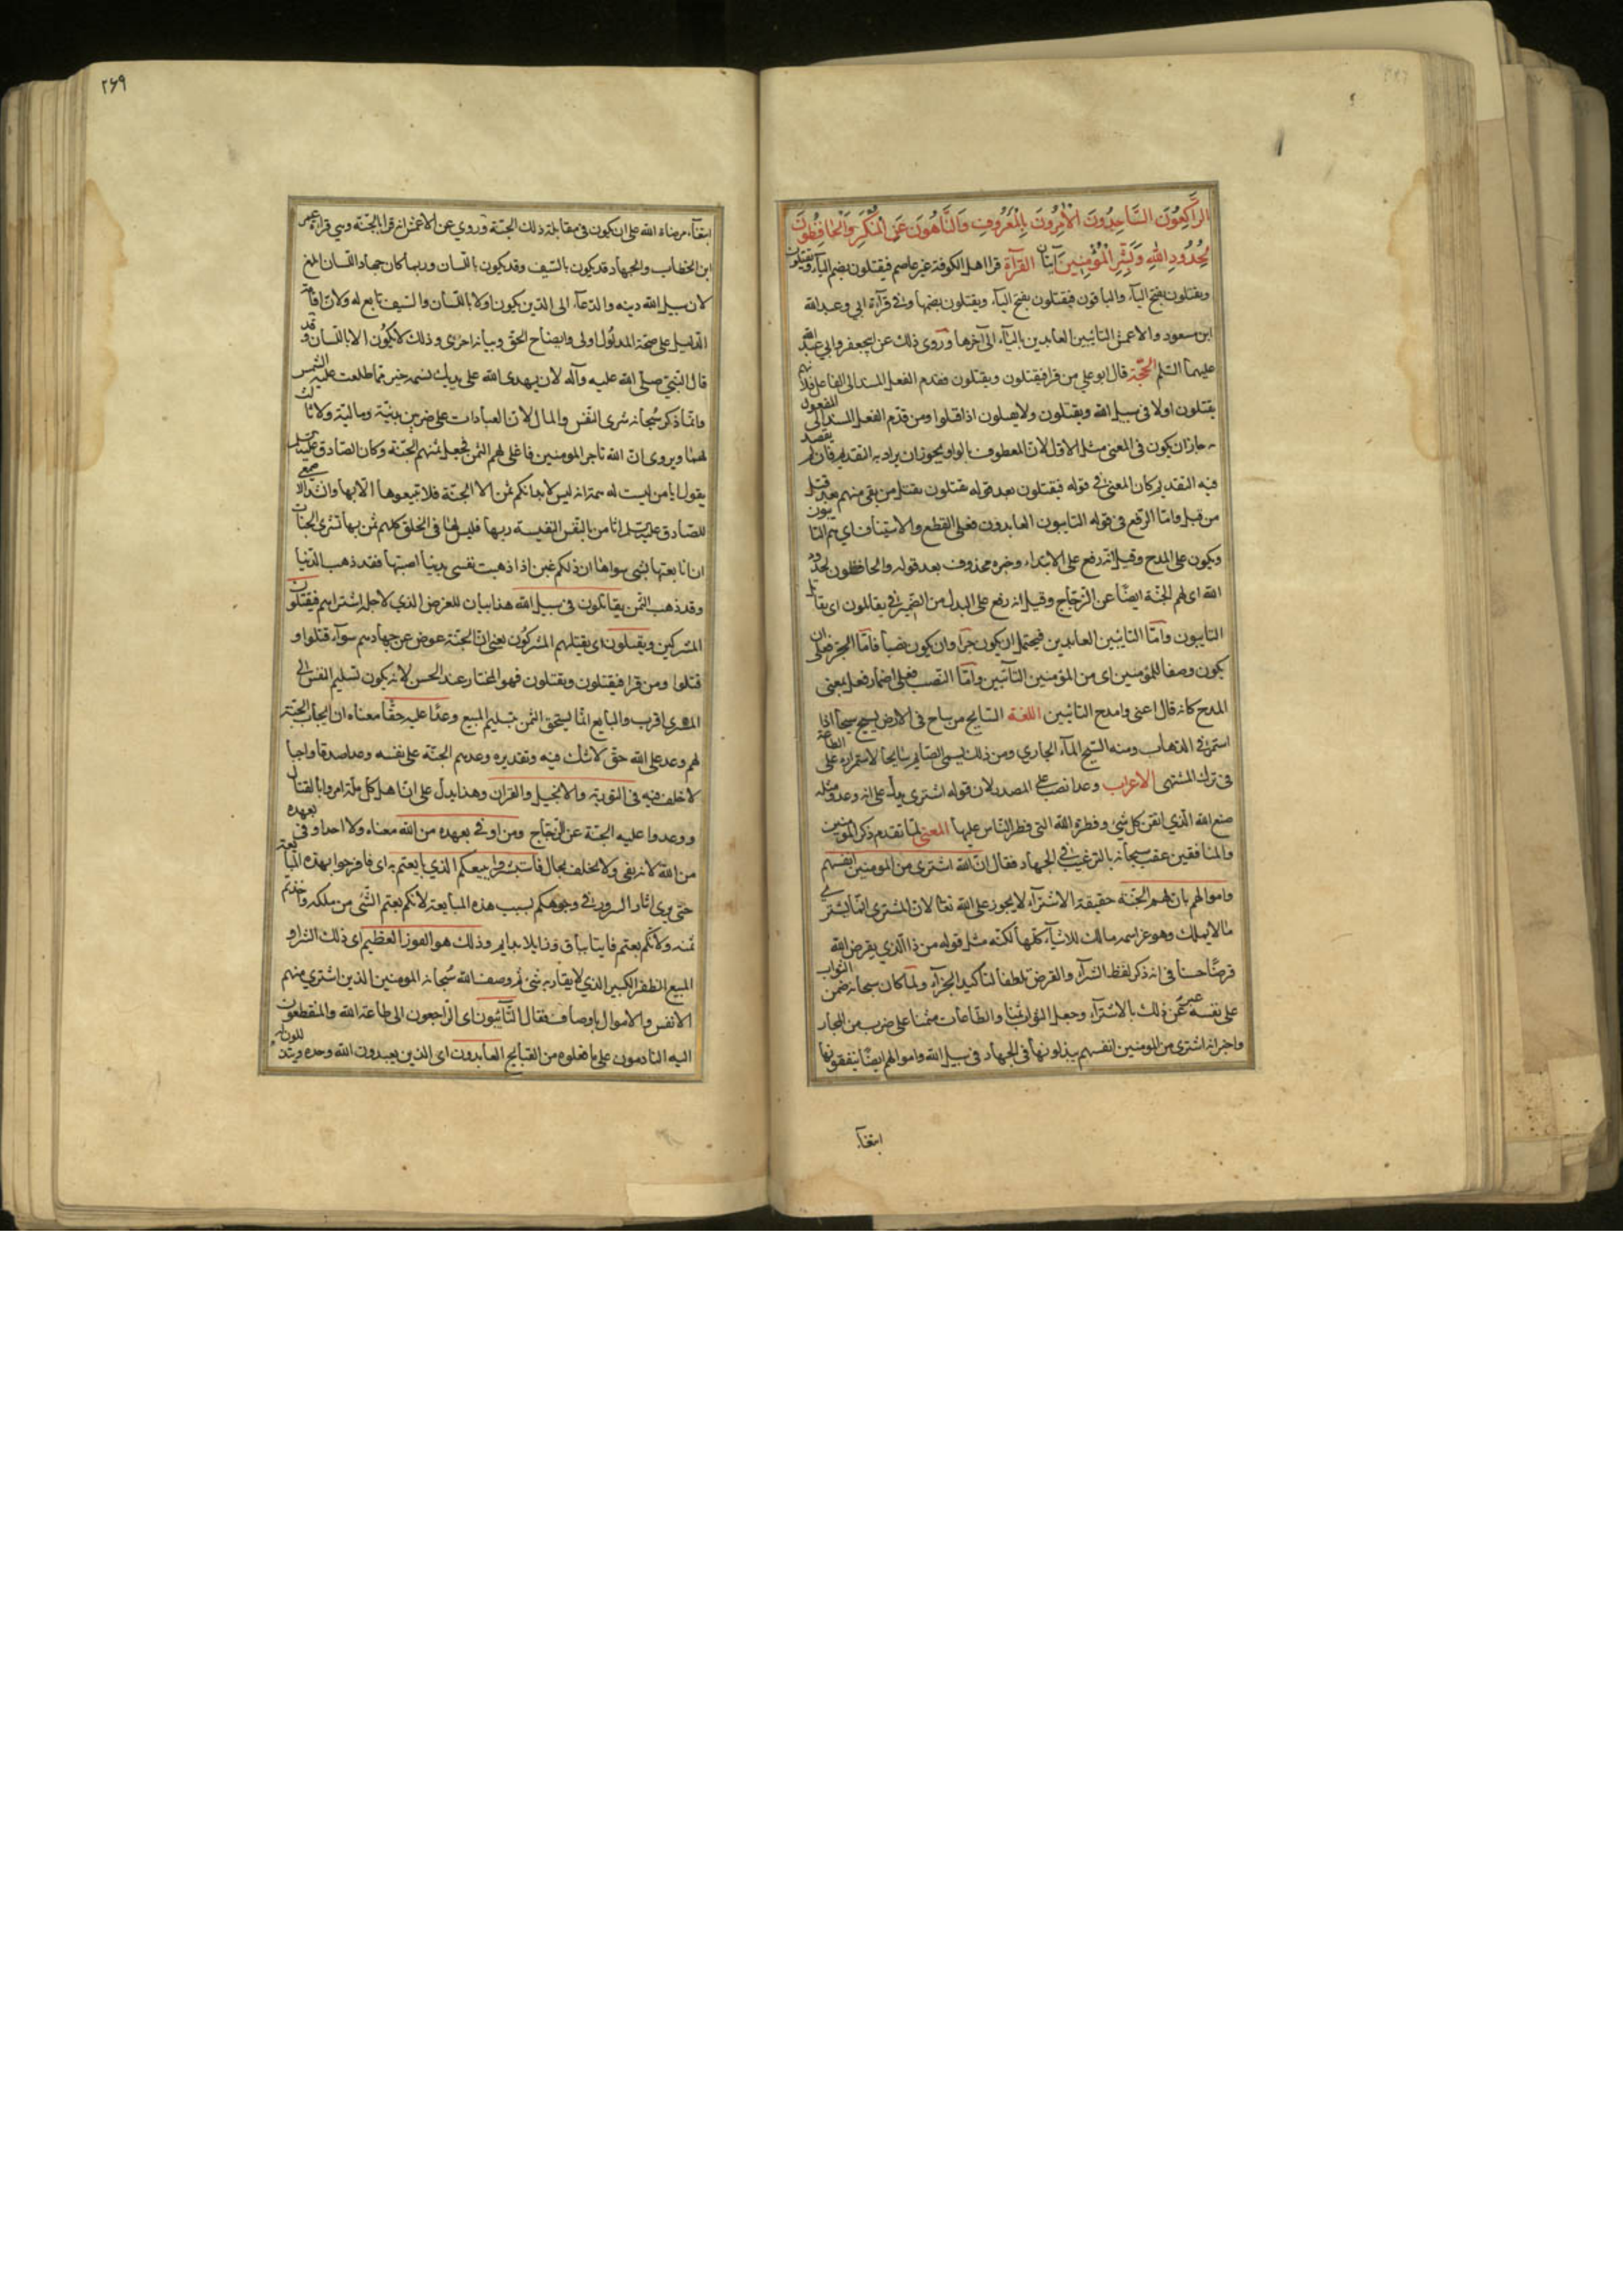 الرَّاكِعُونَ السَّاجِدُونَ الْآمِرُونَ بِالْمَعْرُوفِ وَالنَّاهُونَ عَنِ الْمُنْكَرِ وَالْحَافِظُونَ
لِحُدُودِ اللهِ وَبَشِّرِ الْمُؤْمِنِينَ آيتان القرآءة قرا اهل الكوفة غير عاصم فيقتلون بضم الياء ويقتلون
ويقتلون بفتح الياء والباقون فيقتلون بفتح الياء ويقتلون بضمها وفي قرآءة ابي وعبدالله
ابن مسعود والاعمش التائبين العابدين بالياء الى آخرها وروى ذلك عن ابيجعفر وابي عبد الله
عليهما السّلم الحجّة قال ابو علي من قرا فيقتلون ويقتلون فقدم الفعل المسند الى الفاعل فلانهم
يقتلون اولا في سبيل الله ويقتلون ولا يقتلون اذا قتلوا ومن قدّم الفعل المسند الى المفعول
به جاز ان يكون في المعنى مثل الاول لان المعطوف بالواو يجوز ان يراد به التقديم فان لم يقصد
فيه التقديم كان المعنى في قوله فيقتلون بعد قوله يقتلون يقتل من بقى منهم بعد قتل
من قبل وامّا الرفع في قوله التايبون العابدون فعلى القطع والاستيناف اي هم التايبون
ويكون على المدح وقيل انه رفع على الابتداء وخبره محذوف بعد قوله والحافظون لحدود
الله اى لهم الجنّة ايضًا عن الزجّاج وقيل انه رفع على البدل من الضمير في يقاتلون اى يقاتل
التايبون وامّا التائبين العابدين فيحتمل ان يكون جرا وان يكون نصبا فامّا الجرّ فعلى ان
يكون وصفا للمؤمنين اى من المؤمنين التآئبين وامّا النّصب فعلى اضمار فعل بمعنى
المدح كانه قال اعنى وامدح التائبين اللغة السّايح من ساح فى الارض يسيح سيحا اذا
استمرّ في الذهاب ومنه السّيح المآء الجارى ومن ذلك يسمى الصّايم سايحا لاستمراره على الطاعة
فى ترك المشتهى الاعراب وعدا نصب على المصدر لان قوله اشترى يدل على انه وعد ومثله
صنع الله الّذي اتقن كل شئ وفطرة الله التي فطر النّاس عليها المعنى لمّا تقدم ذكر المؤمنين
والمنافقين عقب سبحانه بالترغيب في الجهاد فقال انّ الله اشترى من المومنين انفسهم
واموالهم بان لهم الجنّة حقيقة الاشترآء لا يجوز على الله تعالى لان المشترى انّما يشترى
ما لا يملك وهو عزّ اسمه مالك للاشيآء كلّها لكنّه مثل قوله من ذا الّذي يقرض الله
قرضًا حسنا فى انه ذكر لفظ الشرآء والقرض تلطفا لتاكيد الجزآء ولمّا كان سبحانه ضمن الثواب
على نفسه عبّر عن ذلك بالاشترآء وجعل الثواب ثمنا والطّاعات مثمنا على ضرب من المجاز
واخبر انه اشترى من المومنين انفسهم يبذلونها فى الجهاد فى سبيل الله واموالهم ايضًا ينفقونها
ابتغآء
٢٦٩
ابتغآء مرضاة الله على ان يكون فى مقابلة ذلك الجنّة وروي عن الاعمش انه قرا بالجنّة وهي قراءة عمر
ابن الخطاب والجهاد قد يكون بالسّيف وقد يكون باللسان وربما كان جهاد اللسان ابلغ
لان سبيل الله دينه والدعآء الى الدين يكون اولا باللّسان والسّيف تابع له ولان اقامة
الدّليل على صحّة المدلول اولى وايضاح الحق وبيانه احرى وذلك لا يكون الا باللّسان وقد
قال النّبيّ صلّى الله عليه وآله لان يهدى الله على يديك نسمة خير ممّا طلعت عليه الشمس
وانّما ذكر سُبحانه شرى النّفس والمال لان العبادات على ضربين بدنيّة وماليّة ولا ثالث
لهما ويروى انّ الله تاجر المومنين فاغلى لهم الثمن فجعل ثمنهم الجنّة وكان الصّادق عليه السلم
يقول ايا من ليست له همّة انه ليس لابدانكم ثمن الا الجنّة فلا تبيعوها الّا بها وانشد الاصمعي
للصّادق عليه السّلم اثامن بالنّفس النفيسة ربها فليس لها فى الخلق كلهم ثمن بها تشرى الجنات
ان انا بعتها بشئ سواها ان ذلكم غبن اذا ذهبت نفسى بدنيا اصبتها فقد ذهب الدّنيا
وقد ذهب الثّمن يقاتلون فى سبيل الله هذا بيان للغرض الذي لاجله اشتراهم فيقتلون
المشركين ويقتلون اى يقتلهم المشركُون يعنى انّ الجنّة عوض عن جهادهم سوآء قتلوا او
قتلوا ومن قرا فيقتلون ويقتلون فهو المختار عند الحسن لانه يكون تسليم النفس الى
المشترى اقرب والبايع انّما يستحق الثمن بتسليم المبيع وعدًا عليه حقًّا معناه ان ايجاب الجنّة
لهم وعد على الله حق لا شك فيه وتقديره وعدهم الجنّة على نفسه وعدا صدقا واجبا
لا خلف فيه فى التورية والانجيل والقران وهذا يدل على انّ اهل كل ملّة امروا بالقتال
ووعدوا عليه الجنّة عن الزجّاج ومن اوفى بعهده من الله معناه ولا احد اوفى بعهده
من الله لانه يفى ولا يخلف بحال فاستبشروا ببيعكم الذي بايعتم به اى فافرحوا بهذه المبايعة
حتى يرى اثار السرور في وجوهكم بسبب هذه المبايعة لانكم بعتم الشّئ من ملكه واخذتم
ثمنه ولانكم بعتم فانيا بباق وزايلا بدايم وذلك هو الفوز العظيم اى ذلك الشراء و
البيع الظفر الكبير الذي لا يقاربه شئ ثم وصف الله سُبحانه المومنين الذين اشترى منهم
الانفس والاموال باوصاف فقال التّآئبون اى الرّاجعون الى طاعة الله والمنقطعون
اليه النادمون على ما فعلوه من القبايح العابدون اى الذين يعبدون الله وحده ويتذللون له